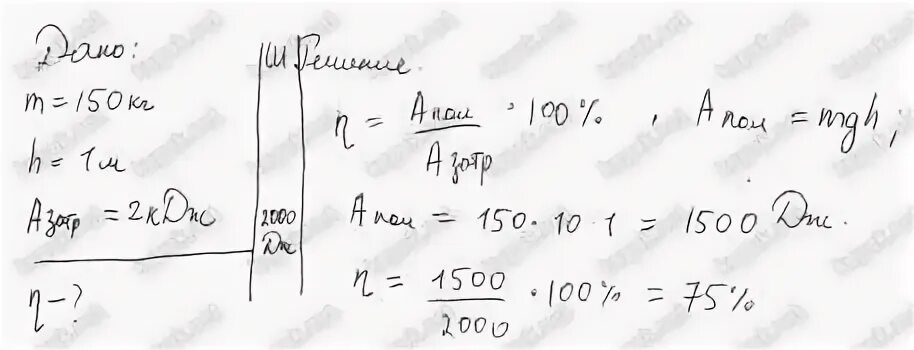 Дано:
m = 150 кг
h = 1 м
Aзатр = 2 кДж
η - ?
СИ
2000
Дж
Решение.
η = Aпол / Aзатр · 100% , Aпол = mgh;
Aпол = 150 · 10 · 1 = 1500 Дж.
η = 1500 / 2000 · 100% = 75%